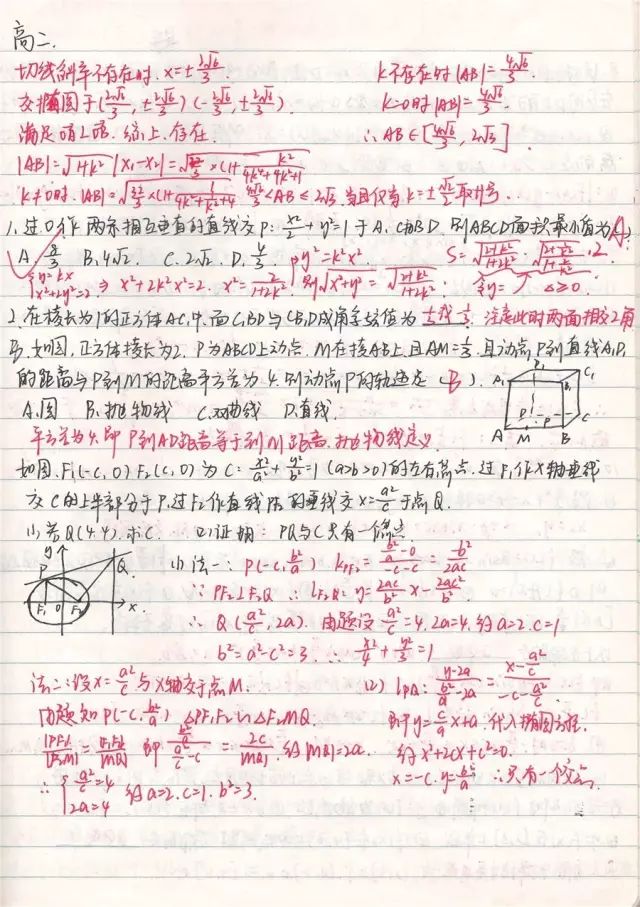 高二.
切线斜率不存在时. x=±2√6/3.
交椭圆于(2√6/3, ±2√6/3) (-2√6/3, ±2√6/3).
满足 综上.存在.
k不存在时|AB|=4√6/3.
k=0时|AB|=4√6/3.
∴AB∈[4√6/3, 2√3]
|AB|=√1+k² |x₁-x₂|=√32/3×(1+k²/(4k⁴+4k²+1))
k≠0时. |AB|=√32/3×(1+1/(4k²+1/k²+4)) 4√6/3<AB≤2√3. 当且仅当k=±√2/2取等号.
1.过O作两条相互垂直的直线交P: x²/2+y²=1于A、C和B、D. 则ABCD面积最小值为(A)
A. 8/3 B.4√2. C.2√2. D.4/3
{y=kx x²+2y²=2. ⇒ x²+2k²x²=2. x²=2/(1+2k²) y²=k²x². 则√x²+y²=√(2+2k²)/(1+2k²).
2.在棱长为1的正方体AC₁中.面C₁BD与CB₁D₁成角余弦值为 1/3或-1/3. 注意此时两面相交2角
3.如图.正方体棱长为2. P为ABCD上动点. M在棱AB上.且AM=1/3. 且动点P到直线A₁D₁
的距离与P到M的距离平方差为4.则动点P的轨迹是(B).
A.圆 B.抛物线 C.双曲线 D.直线.
平方差为4.即P到AD距离等于到M距离.抛物线定义.
D₁ C₁ A₁ B₁ D C P A M B
如图.F₁(-c,0) F₂(c,0)为C: x²/a²+y²/b²=1 (a>b>0)的左右焦点.过F₁作x轴垂线
交C的上半部分于P.过F₂作直线PF₂的垂线交x=a²/c于点Q.
(1)若Q(4.4).求C. (2)证明: PQ与C只有一个焦点.
y P Q F₁ O F₂ x
(1)法一: P(-c, b²/a) kPF₂=(b²/a-0)/(-c-c)=-b²/2ac
∵PF₂⊥F₂Q ∴lF₂Q: y=2ac/b² x-2ac²/b²
∴Q(a²/c, 2a). 由题设a²/c=4. 2a=4. 得a=2. c=1
b²=a²-c²=3. ∴x²/4+y²/3=1
法二:设x=a²/c与x轴交于点M.
由题知P(-c, b²/a) △PF₁F₂∽△F₂MQ.
|PF₁|/|F₂M|=|F₁F₂|/|MQ| 即 (b²/a)/(a²/c-c)=2c/|MQ|. 得|MQ|=2a.
∴{a²/c=4 2a=4 得a=2. c=1. b²=3.
(2) lPQ: (y-2a)/(b²/a-2a)=(x-a²/c)/(-c-a²/c)
即y=c/a x+a. 代入椭圆方程.
得x²+2cx+c²=0.
x=-c. y=b²/a ∴只有一个交点.